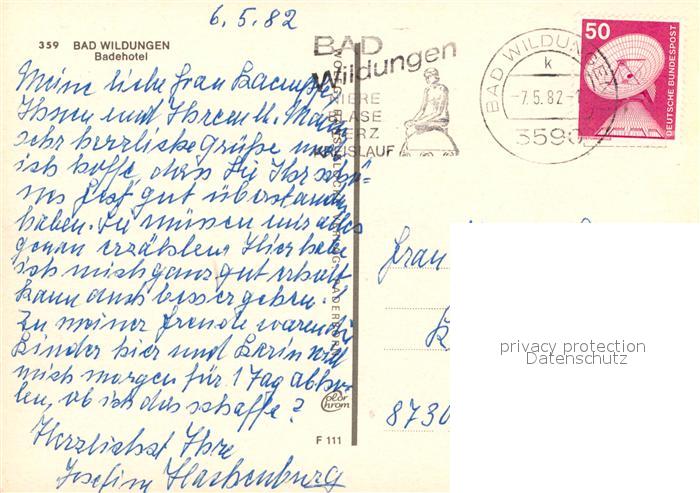 6.5.82
359 BAD WILDUNGEN
Badehotel
Meine liebe Frau
Ihnen und Ihrem lb. Mann
sehr herzliche Grüße und
ich hoffe, dass Sie Ihr schö-
nes Fest gut überstanden
haben. Sie müssen mir alles
genau erzählen. Hier habe
ich mich ganz gut erholt
kann auch besser gehen.
Zu meiner Freude waren die
Kinder hier und Karin will
mich morgen für 1 Tag abho-
len, ob ich das schaffe?
Herzlichst Ihre
Josefine Hachenburg
BAD
Wildungen
NIERE
BLASE
HERZ
KREISLAUF
BAD WILDUNGEN
k
-7.5.82-1
3590
50
DEUTSCHE BUNDESPOST
Color
chrom
F 111
Frau
K
8730
privacy protection
Datenschutz